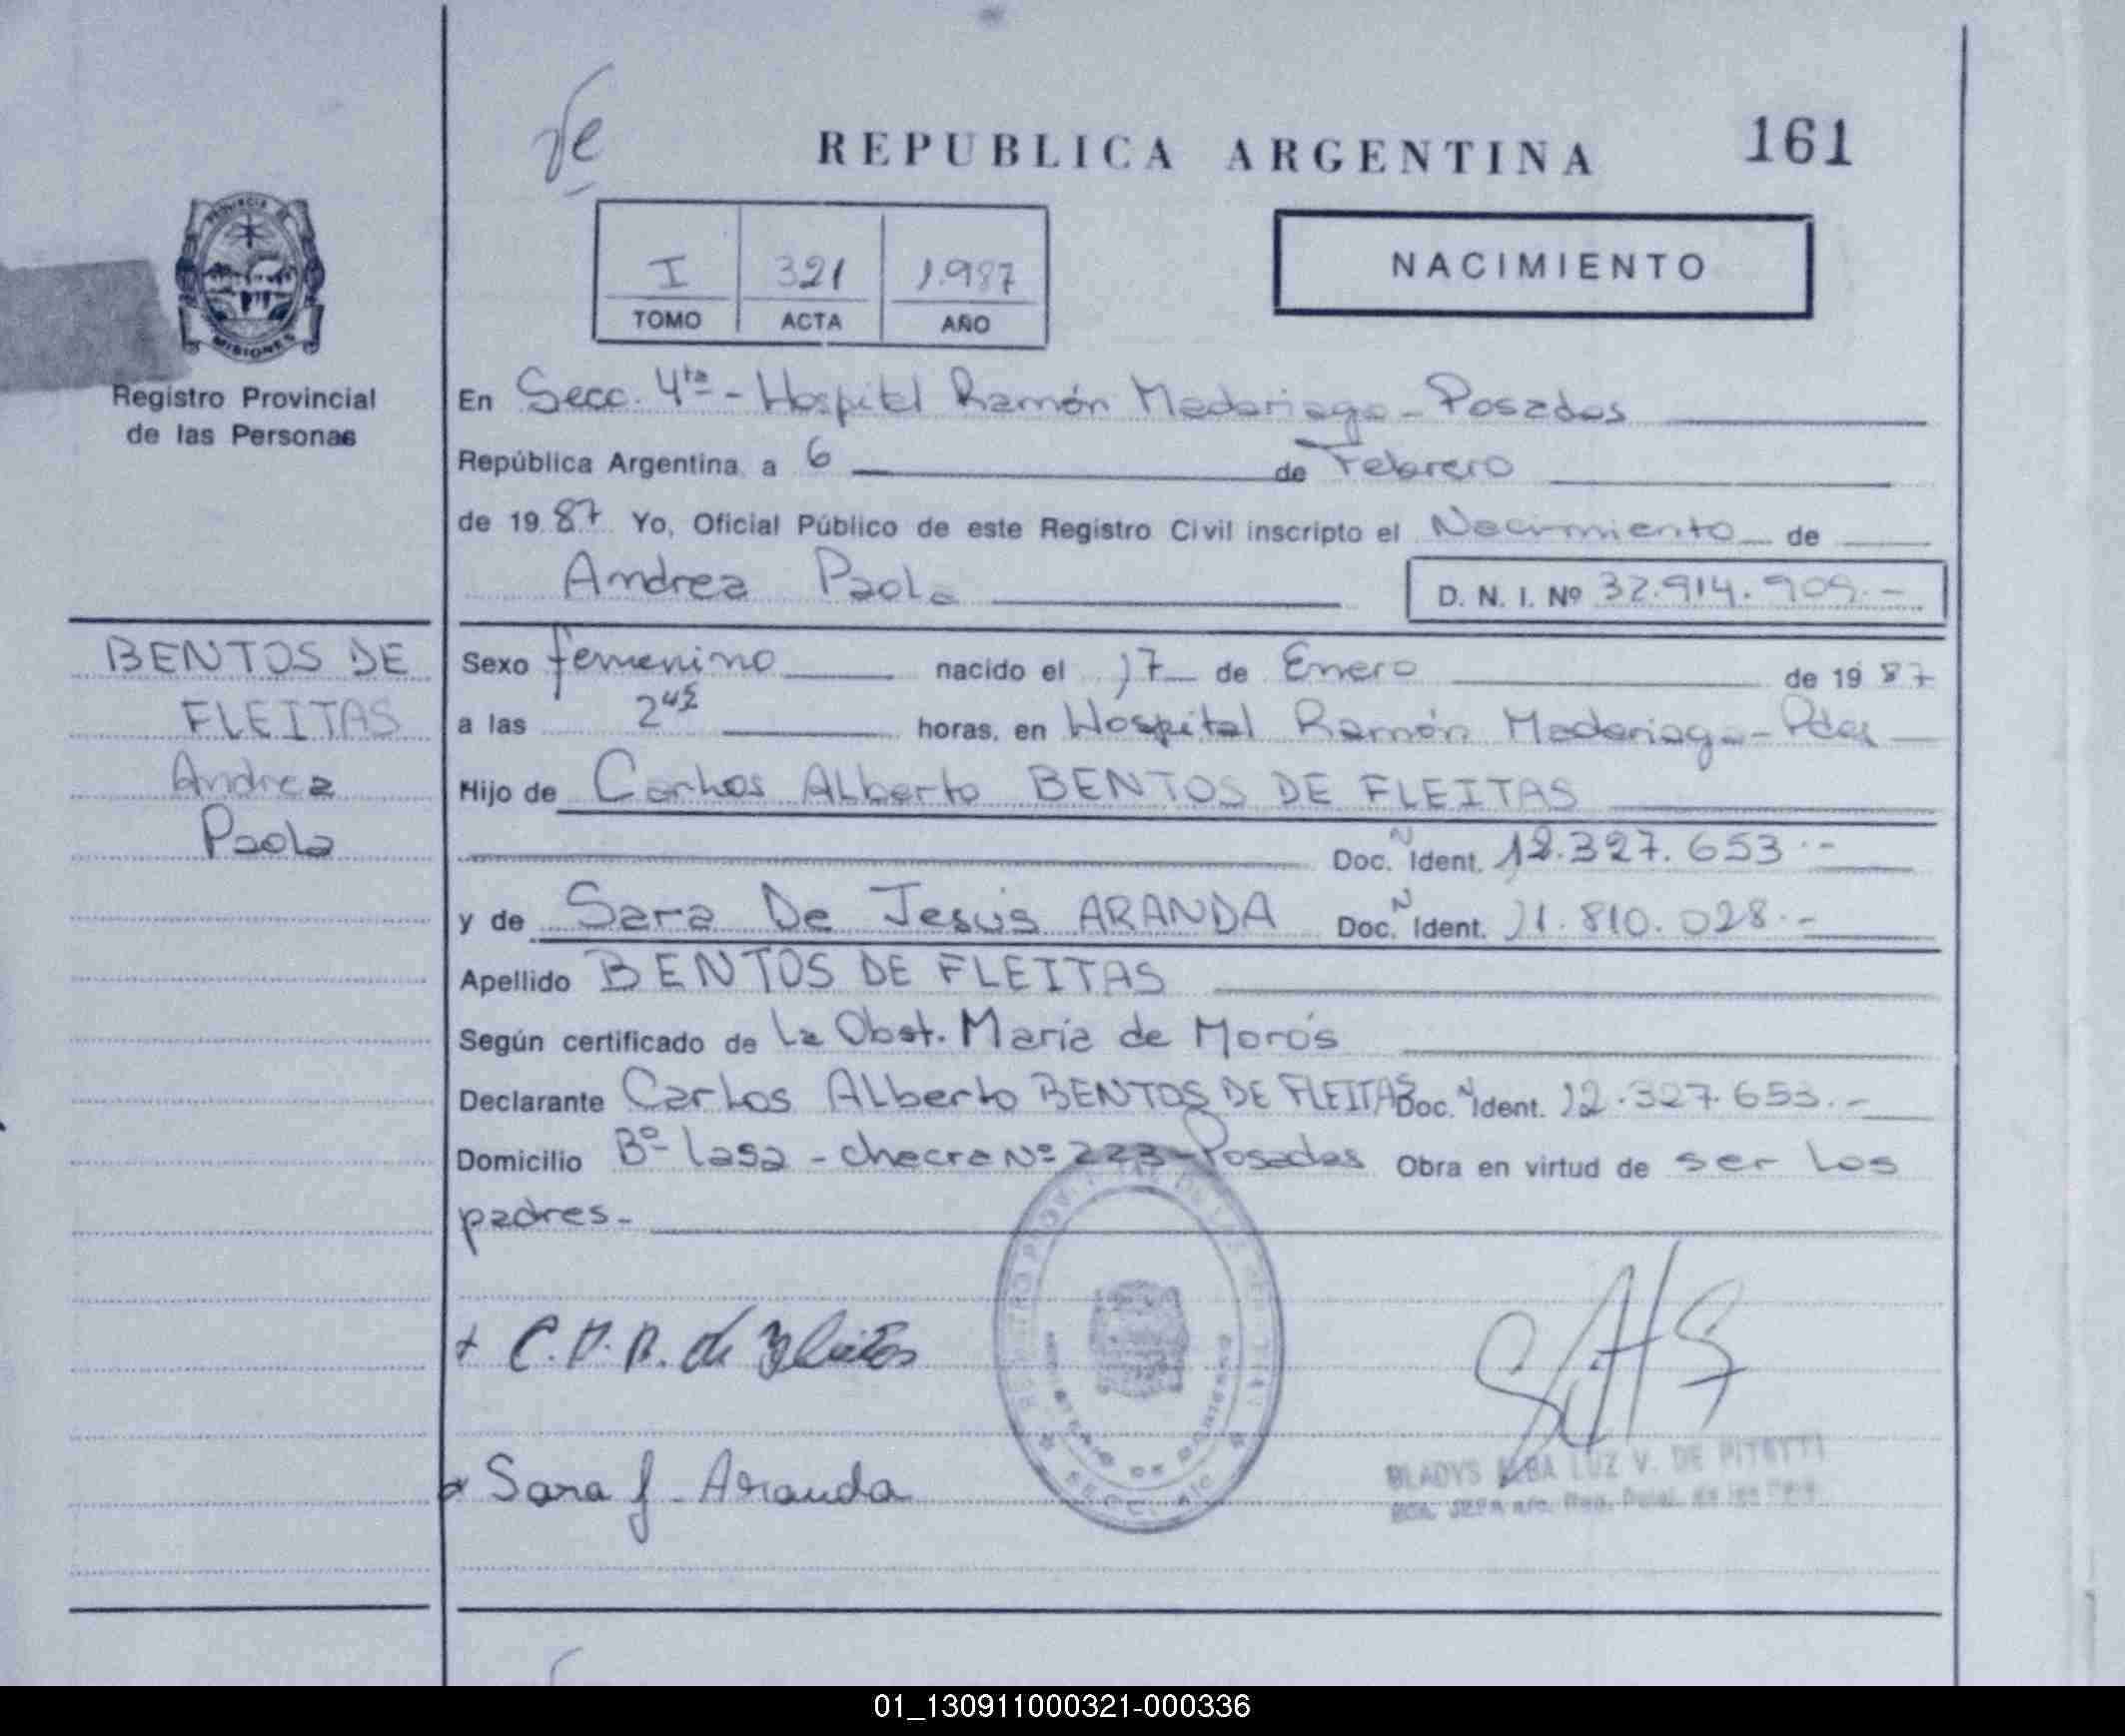 REPUBLICA ARGENTINA
161
I 321 1.987
TOMO ACTA AÑO
NACIMIENTO
PROVINCIA DE
MISIONES
Registro Provincial
de las Personas
En Secc. 4ta - Hospital Ramón Madariaga - Posadas
República Argentina, a 6 de Febrero
de 1987 Yo, Oficial Público de este Registro Civil inscripto el Nacimiento de
Andrea Paola D. N. I. Nº 32.914.909.-
BENTOS DE
FLEITAS
Andrea
Paola
Sexo femenino nacido el 17 de Enero de 1987
a las 2 45 horas, en Hospital Ramón Madariaga - Pdas
Hijo de Carlos Alberto BENTOS DE FLEITAS
Doc. N Ident. 12.327.653.-
y de Sara De Jesús ARANDA Doc. N Ident. 11.810.028.-
Apellido BENTOS DE FLEITAS
Según certificado de la Obst. María de Morós
Declarante Carlos Alberto BENTOS DE FLEITAS Doc. N Ident. 12.327.653.-
Domicilio Bº Lasa - chacra Nº 223 - Posadas Obra en virtud de ser los
padres.-
de Fleitas
Sara J. Aranda
GLADYS ALBA LUZ V. DE
01_130911000321-000336